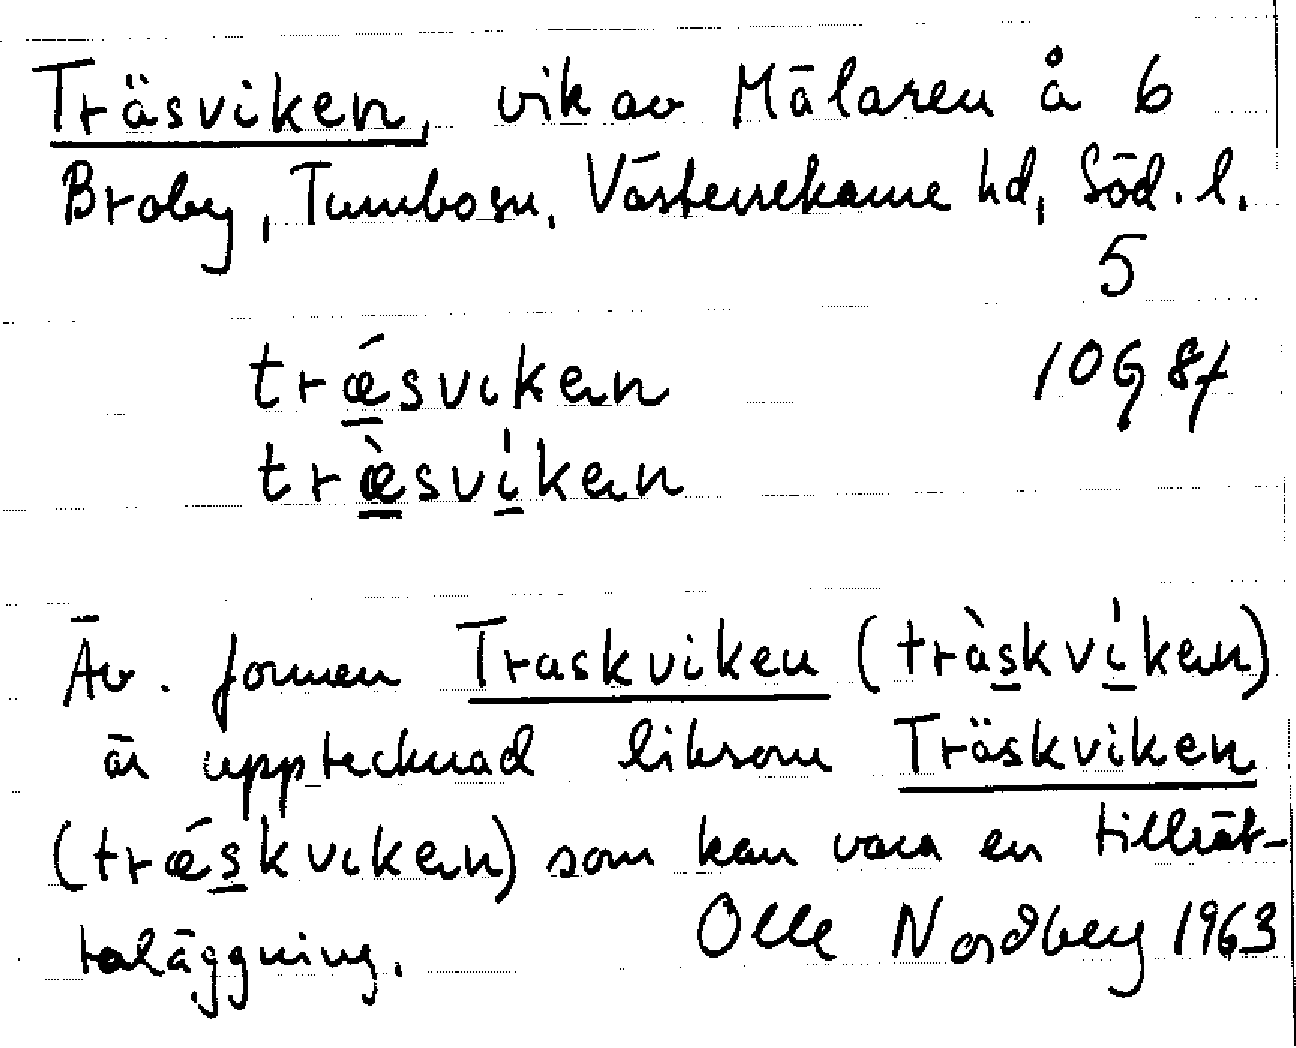 Träsviken, vik av Mälaren å 6
Broby, Tumbo sn, Västerrekarne hd, Söd. l.
5
trǽsviken 10G 8f
træ̀svíken
Äv. formen Traskviken (tràskvíken)
är upptecknad liksom Träskviken
(trǽskviken) som kan vara en tillrät-
taläggning. Olle Nordberg 1963